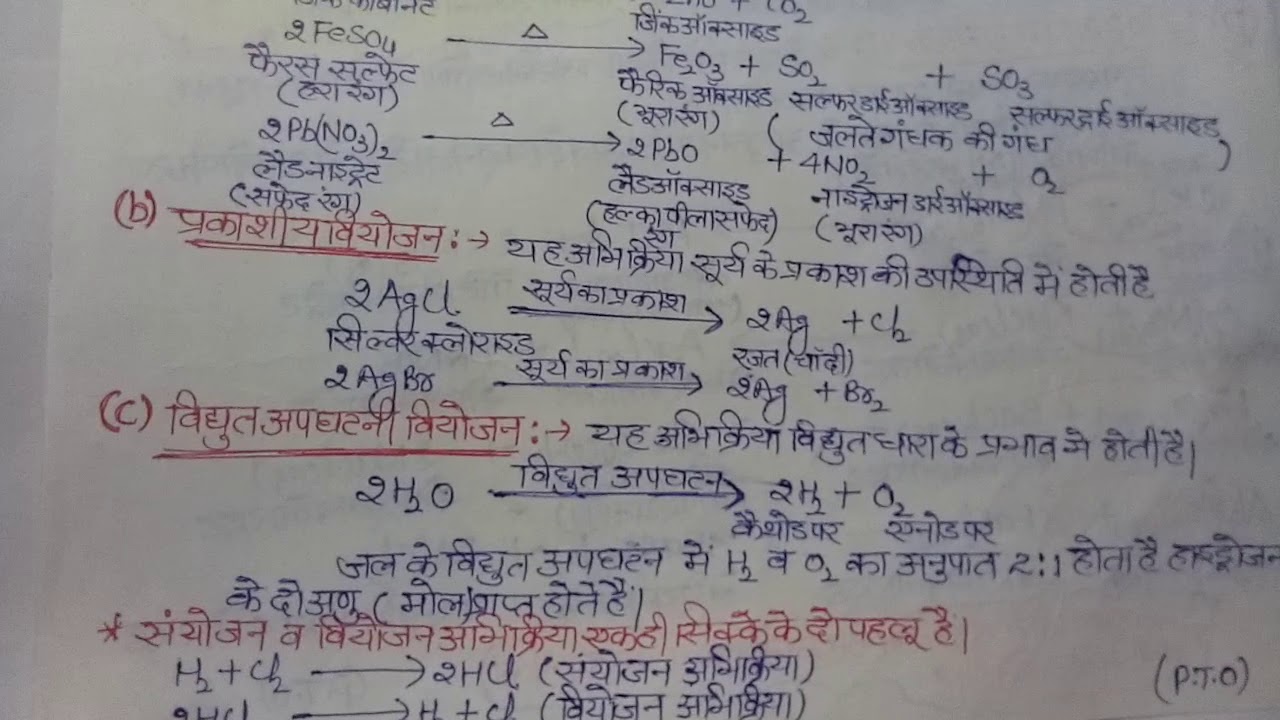 जिंक कार्बोनेट ZnO + CO2
जिंक ऑक्साइड
2FeSO4 —Δ→ Fe2O3 + SO2 + SO3
फैरस सल्फेट फैरिक ऑक्साइड सल्फर डाई ऑक्साइड सल्फर ट्राई ऑक्साइड
(हरा रंग) (भूरा रंग) (जलते गंधक की गंध)
2Pb(NO3)2 —Δ→ 2PbO + 4NO2 + O2
लैड नाइट्रेट लैड ऑक्साइड नाइट्रोजन डाई ऑक्साइड
(सफेद रंग) (हल्का पीला सफेद) रंग (भूरा रंग)
(b) प्रकाशीय वियोजन :→ यह अभिक्रिया सूर्य के प्रकाश की उपस्थिति में होती है
2AgCl —सूर्य का प्रकाश→ 2Ag + Cl2
सिल्वर क्लोराइड रजत (चाँदी)
2AgBr —सूर्य का प्रकाश→ 2Ag + Br2
(c) विद्युत अपघटनी वियोजन :→ यह अभिक्रिया विद्युत धारा के प्रभाव मे होती है।
2H2O —विद्युत अपघटन→ 2H2 + O2
कैथोड पर एनोड पर
जल के विद्युत अपघटन में H2 व O2 का अनुपात 2:1 होता है हाइड्रोजन
के दो अणु (मोल) प्राप्त होते है।
* संयोजन व वियोजन अभिक्रिया एक ही सिक्के के दो पहलू है।
H2 + Cl2 → 2HCl (संयोजन अभिक्रिया)
2HCl → H2 + Cl2 (वियोजन अभिक्रिया)
(P.T.O)